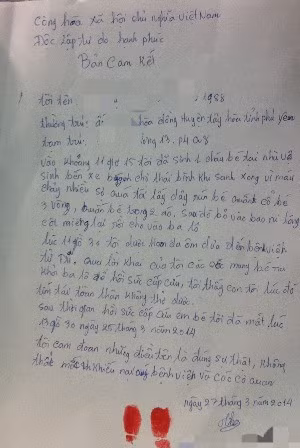 Cộng hòa xã hội chủ nghĩa việt Nam
Độc lập tự do hạnh phúc
Bản Cam Kết
tôi tên 1988
thường trú: ấ hòa đông huyện tây hòa tỉnh phú yên
tạm trú: 13. p4 q8
vào khoảng 11 giờ 15 tôi đã sinh 1 cháu bé tại nhà vệ
sinh bến xe chí thái bình khi sanh xong vì máu
chảy nhiều sợ quá tôi lấy dây rún bé quấn cổ bé
3 vòng, quấn bé trong áo, sau đó bỏ vào bao ni lông
cột miệng lại rồi cho vào ba lô
lúc 11 giờ 30 tôi được đưa đến bệnh viện
từ Dũ, qua lời khai của tôi các mang bé ra
khỏi ba lô để hồi sức cấp cứu, tôi thấy con tôi lúc đó
tím tái toàn thân không thở được.
sau thời gian hồi sức cấp cứu em bé tôi đã mất lúc
giờ 30 ngày 25 tháng 3 năm 2014
tôi cam đoan những điều trên là đúng sự thật, không
thắc mắc khiếu nại bệnh viện và các cơ quan
ngày 27 tháng 3 năm 2014